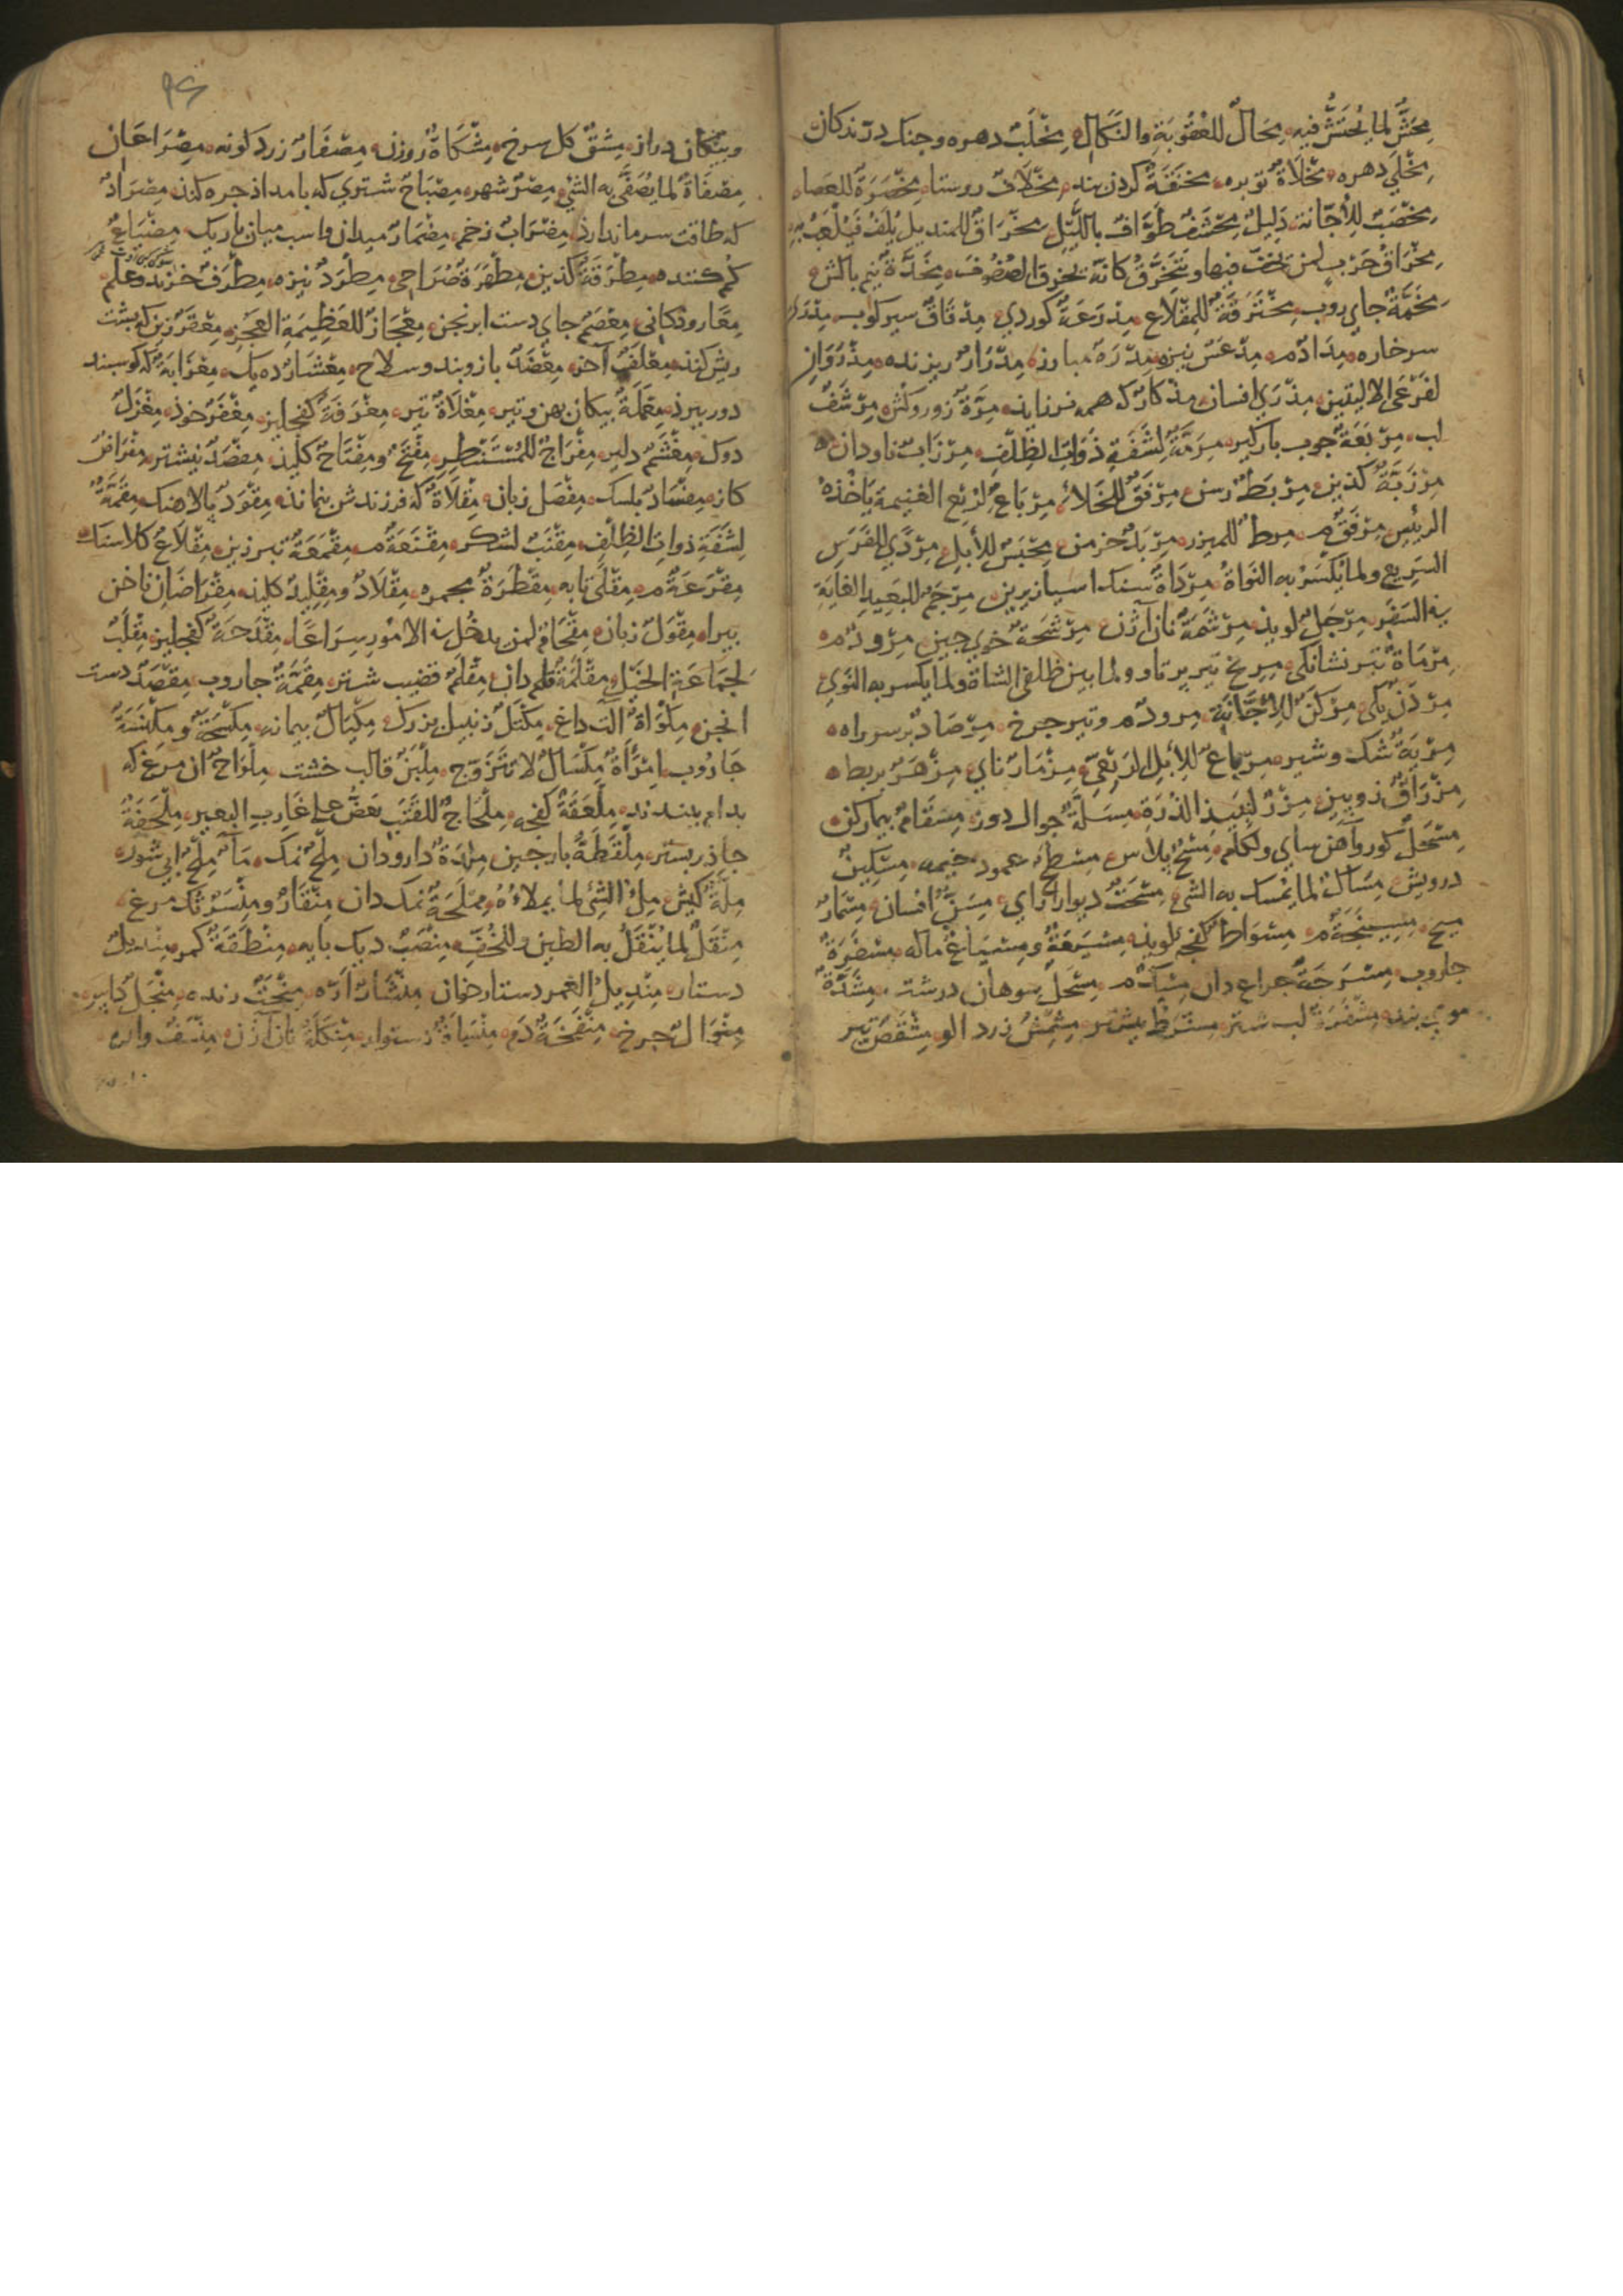 مِحَشٌّ لما يُحتَشُّ فيه مِحَالٌ للعُقُوبَةِ والنَّكَالِ مِخْلَبٌ دهره وجنك درندكان
مِخْلَى دهره مِخْلَاةٌ توبره مِخنَقَةٌ كردن بند مِخْلَافٌ روستا مِخْصَرَةٌ للعصا
مِخْضَبٌ لِلاِجّانة دَلِيلٌ مِخْشَفٌ طَوَّافٌ باللَّيْلِ مِخْرَاقٌ للمنديل يُلَفُّ فَيُلْعَبُ به
مِخْرَاقُ حَرْبٍ لمن يخفّ فيها ويَتَخَرَّقُ كانّه يخرق الصُفُوفَ مِخَدَّةٌ نيم بالش
مِخَمَّةٌ جاي روب مِخْتَرَقَةٌ للمِقْلَاعِ مِدْرَعَةٌ كوردي مِدْقَاقٌ سيركوب مِدْرَى
سرخاره مِدَادٌ م مِدْعَسٌ نيزه مِدْرَهٌ مبارز مِدْرَارٌ ريزنده مِذْرَوَانِ
لفَرْعَي الاليتين مِذْرَى افسان مِذْكَارٌ كه همه نر زايد مِرَّةٌ زور وكنش مِرْشَفٌ
لب مِرْبَعَةٌ جوب باركير مِرَمَّةٌ لِشَفَةِ ذَوَاتِ الظِلْفِ مِرْزَابٌ ناودان
مِرْزَبَةٌ كذين مِرْبَطٌ رسن مِرْفَقٌ للخَلَاءِ مِرْبَاعٌ لِرُبْعِ الغنيمة يَاخُذُهُ
الرئيس مِرْفَقٌ م مِرطٌ للميزر مِرْبَدٌ خرمن مِحْبَسٌ للأبِلِ مِرْدًى للفَرَسِ
السَرِيعِ ولما يُكْسَرُ به النَوَاةُ مِرْدَاةٌ سنك اسيا زيرين مِرْجَمٌ للبَعِيدِ الغايَةِ
في السَفَرِ مِرْجَلٌ لويد مِرْشَمَةٌ نان آژن مِرْشَحَةٌ خوي جين مِرْوَدٌ م
مِرْمَاةٌ تير نشانكى مِرِيخٌ تير پرتاو ولما بين ظلفي الشاة ولما يكسر به النَوَى
مِرْدَنٌ يكى مِرْكَنٌ لِلاِجَّانَةِ مِرودٌ م وتير جرخ مِرْصَادٌ بر سر راه
مِرْيَةٌ شك وشير مِرْبَاعٌ للاِبِلِ الرَبْعِيَّةِ مِزْمَارٌ ناي مِزْهَرٌ بربط
مِزْرَاقٌ زوبين مِزْرٌ لِنَبِيذِ الذُرَةِ مِسَلَّةٌ جوال دوز مِسْقَامٌ بيماركن
مِسْحَلٌ كور وآهن ساي ولكام مِسْحٌ پلاس مِسْطَحٌ عمود خيمه مِسْكِينٌ
درويش مِسَاكٌ لما يمسك به الشي مِسْحَتٌ ديوارآراي مِسَنٌّ افسان مِسْمَارٌ
ميخ م مِسْوَاطٌ كفجه لويد مِسْيَعَةٌ ومِسْيَاعٌ ماله مِسْفَرَةٌ
جاروب مِسْرَجَةٌ جراغ دان مِسَكٌ م مِسْحَلٌ سوهان درشت مِشَدَّةٌ
موي بند مِشْفَرٌ لب شتر مِشْرَطٌ نيشتر مِشْمِشٌ زرد الو مِشْقَصٌ تير
٩٤
وپيكان دراز مِشْقٌ كل سرخ مِشْكَاةٌ روزن مِصْفَارٌ زرد كونه مِصْرَاعَانِ
مِصْفَاةٌ لما يُصَفَّى به الشي مِصْرٌ شهر مِصْبَاحٌ شتري كه بامداد جره كند مِصْرَادٌ
كه طاقت سرما ندارد مِضْرَابٌ زخم مِضْمَارٌ ميدان واسب ميان باريك مِضْيَاعٌ
كم كننده مِطْرَقَةٌ كذين مِطْهَرَةٌ صُرَاحى مِطْرَدٌ نيزه مِطْرَفٌ خز بدو علم
مِعَا رودكانى مِعْصَمٌ جاي دست ابرنجن مِعْجَازٌ للعَظِيمَةِ العَجُزِ مِعْقَرٌ زين كه پشت
ريش كند مِعْلَفٌ آخر مِعْضَدٌ بازوبند وسلاح مِعْشَارٌ ده يك مِعْزَابَةٌ كه كوسبند
دور برد مِعْبَلَةٌ بيكان بهن وتير مِغْلَاةٌ تير مِغْرَفَةٌ كفجليز مِغْفَرٌ خوذ مِغْزَلٌ
دوك مِغْشَمٌ دلير مِفْرَاجٌ للمُسْتَنْظِرِ مِفْتَحٌ ومِفْتَاحٌ كليذ مِفْصَدٌ نيشتر مِفْرَاصٌ
كاز مِفْسَادٌ بلسك مِفْصَلٌ زبان مِقْلَاةٌ كه فرزندش نماند مِقْوَدٌ پالاهنك مِقَمَّةٌ
لِشَفَةِ ذواتِ الظِلْفِ مِقْنَبٌ لشكر مِقْنَعَةٌ م مِقْمَعَةٌ تبرزين مِقْلَاعٌ كلاسنك
مِقْرَعَةٌ م مِقْلًى تابه مِقْطَرَةٌ مجمره مِقْلَادٌ ومِقْلِيدٌ كليد مِقْرَاضَانِ ناخن
بيراه مِقْوَلٌ زبان مِقْحَامٌ لمن يدخُل في الامُورِ سِرَاعًا مِقْدَحَةٌ كفجليز مِقْنَبٌ
لجَمَاعَةِ الخَيْلِ مِقْلَمَةٌ قلم دان مِقْلَمٌ قضيب شتر مِقَمَّةٌ جاروب مِقْصَدٌ دست
انجن مِكْوَاةٌ آلت داغ مِكْتَلٌ زنبيل بزرك مِكْيَالٌ پيمانه مِكْسَحَةٌ ومِكْنَسَةٌ
جَارُوب امْرَأَةٌ مِكْسَالٌ لا تَتَزَوَّج مِلْبَنٌ قالب خشت مِلْوَاحٌ آن مرغ كه
بدام بندند مِلْعَقَةٌ كفجه مِلْحَاحٌ للقَتَبِ يَعَضُّ على غَارِبِ البعير مِلْحَفَةٌ
جاذر بستر مِلْقَطَةٌ بارجين داروдан مِلْحٌ نمك مَاءٌ مِلْحٌ آبي شور
مِلَّةٌ كيش مِلْءُ الشئِ لما يملاءُهُ مِمْلَحَةٌ نمك دان مِنْقَارٌ ومِنْسَرٌ نُك مرغ
مِنْقَلٌ لما يُنْقَلُ به الطين وللخُفِّ مِنْصَبٌ ديك بايه مِنْطَقَةٌ كمر مِنْديلٌ
دستار مِنْديلُ الغمر دستار خوان مِنْشَارٌ ارّه مِنْحَتٌ رنده مِنْجَلٌ داس
مِنْوَالٌ جرخ مِنْفَخَةٌ دم مِنْسَاةٌ دستوار مِنْكَلَةٌ نان آژن مِنْسَفٌ واره